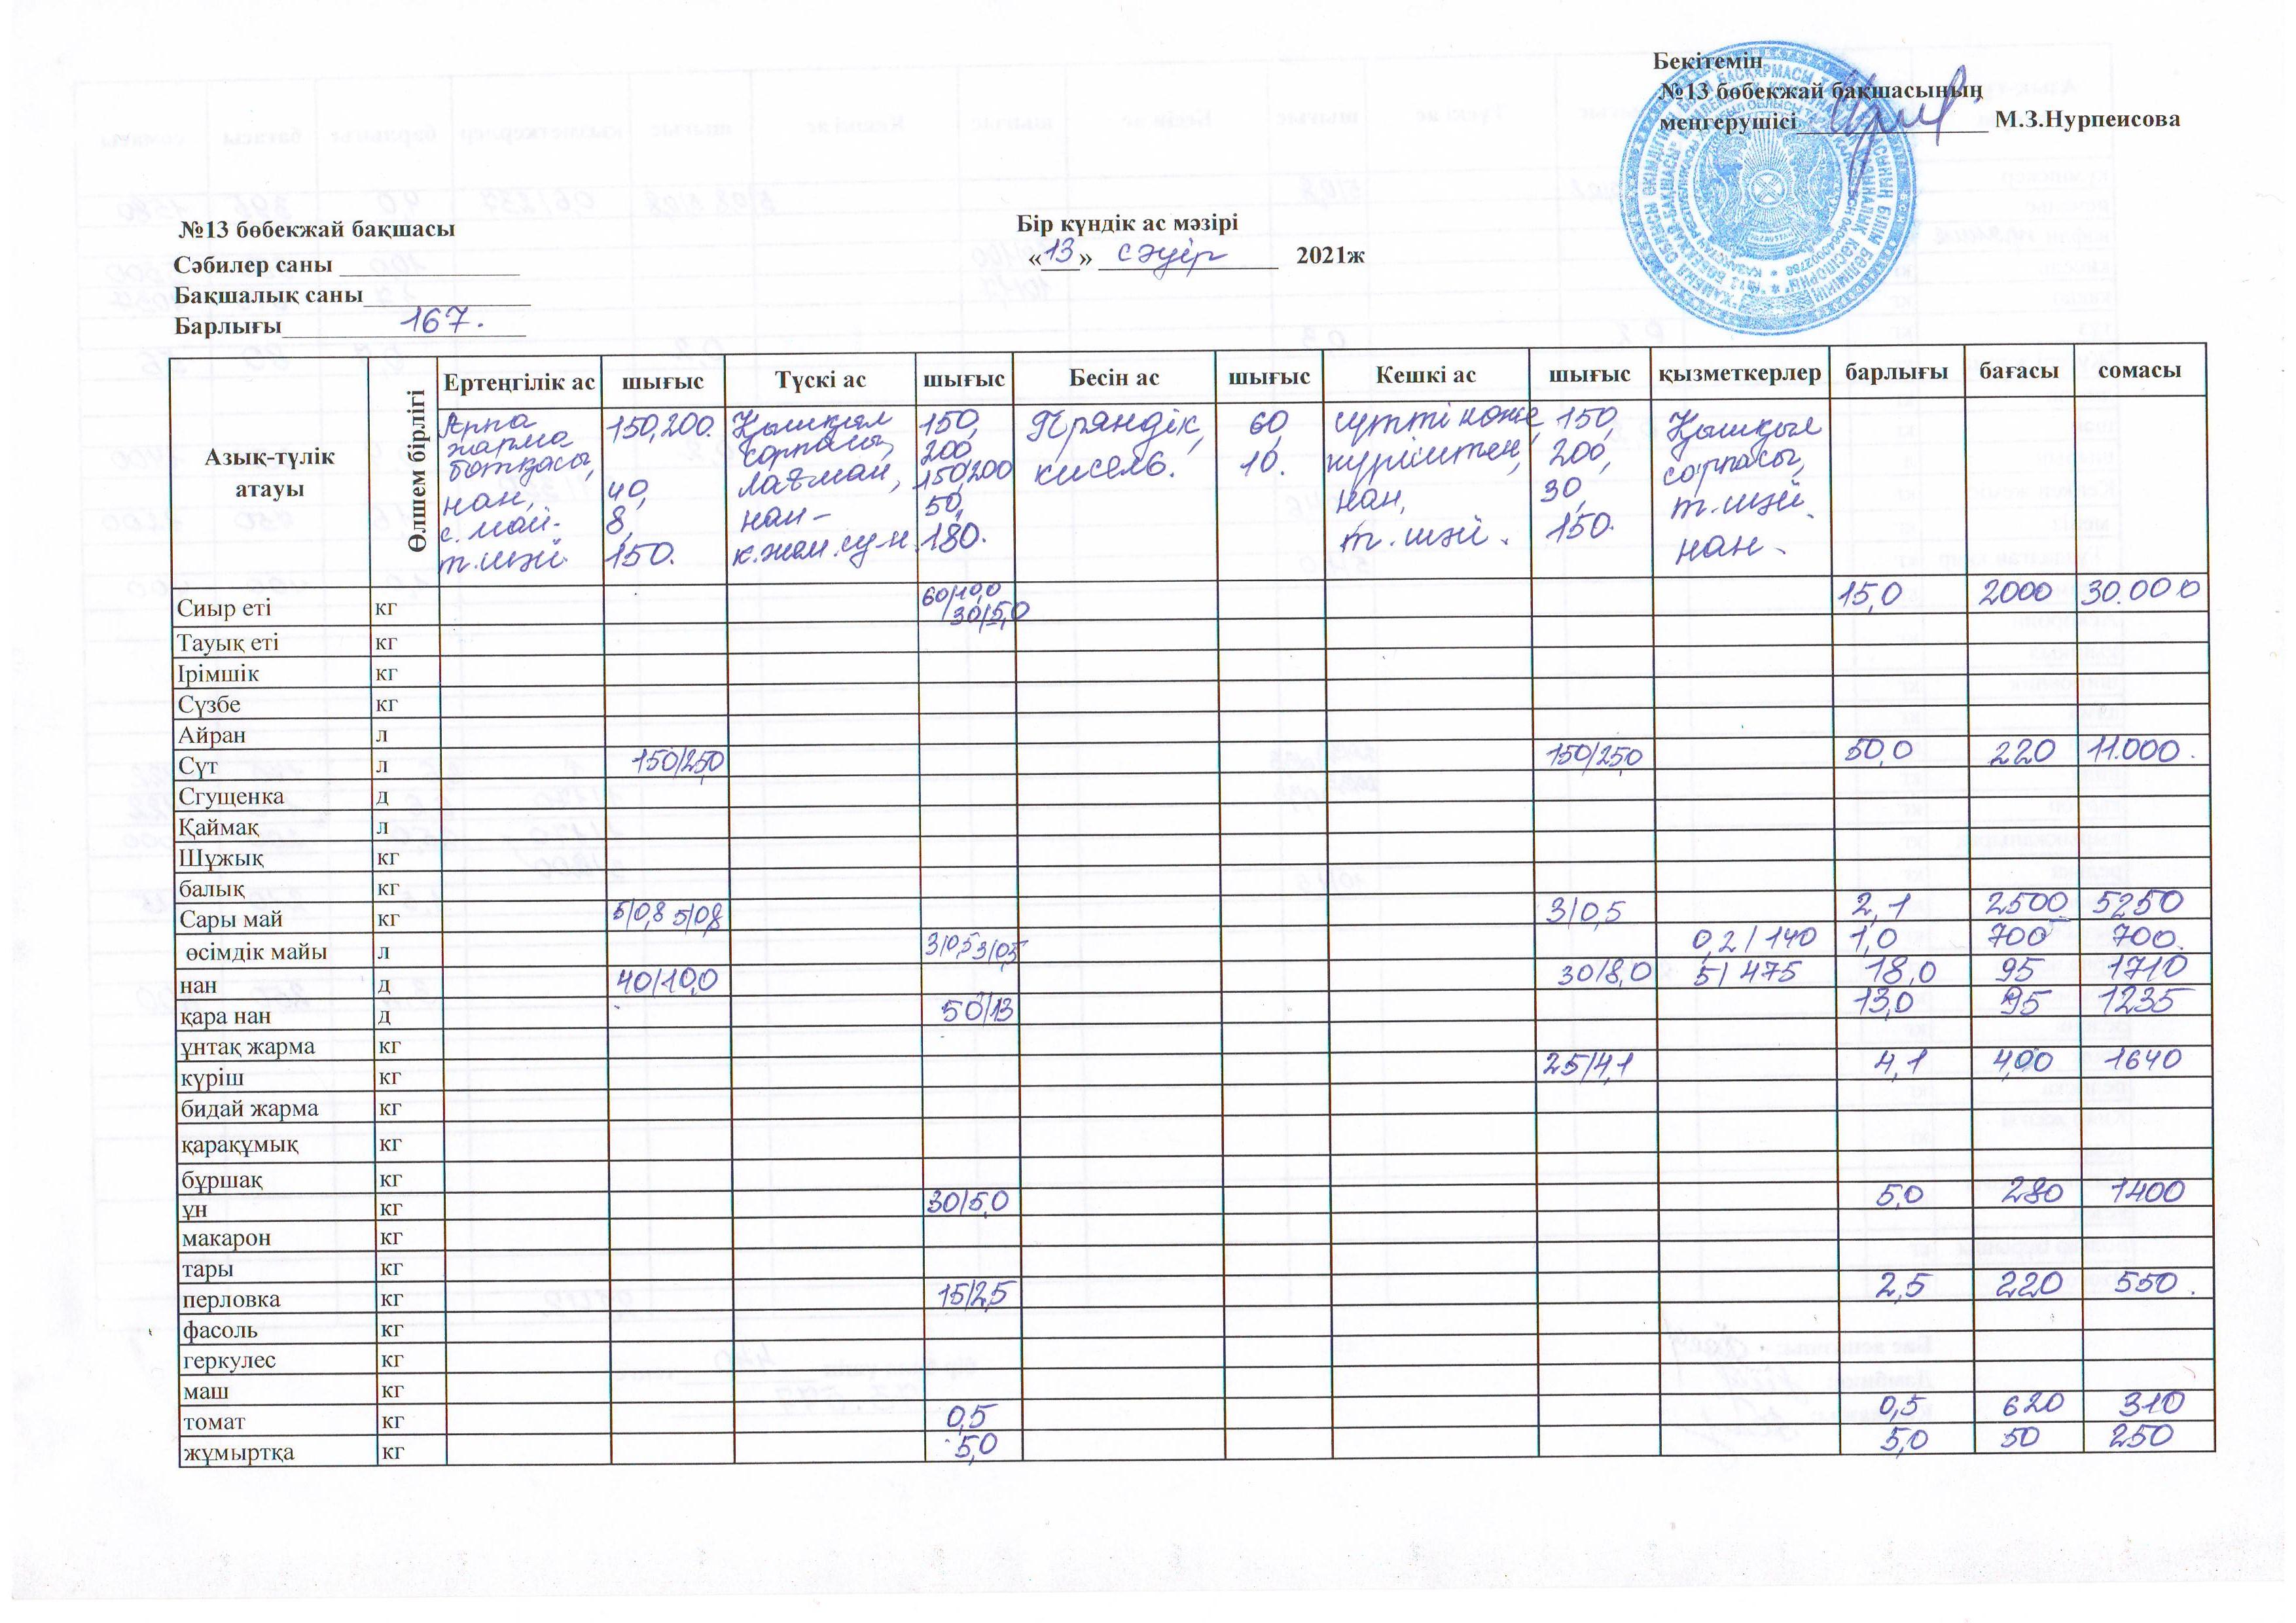 Бекітемін
№13 бөбекжай бақшасының
меңгерушісі М.З.Нурпеисова
№13 бөбекжай бақшасы
Бір күндік ас мәзірі
Сәбилер саны
«13» сәуір 2021ж
Бақшалық саны
Барлығы 167.
Азық-түлік атауы Өлшем бірлігі Ертеңгілік ас шығыс Түскі ас шығыс Бесін ас шығыс Кешкі ас шығыс қызметкерлер барлығы бағасы сомасы
Арпа 150,200. Қышқыл 150, Пряндік, 60, сүтті көже 150, Қышқыл
жарма сорпасы, 200 кисель. 10. күріштен, 200, сорпасы,
ботқасы, лағман, 150,200 нан, 30, т.шәй.
нан, 40, нан- 50, т.шәй. 150. нан-
с.май- 8, к.жем.су-н. 180.
т.шәй. 150.
Сиыр еті кг 60/10,0 15,0 2000 30.000
/30/5,0
Тауық еті кг
Ірімшік кг
Сүзбе кг
Айран л
Сүт л 150/25,0 150/25,0 50,0 220 11.000.
Сгущенка д
Қаймақ л
Шұжық кг
балық кг
Сары май кг 5/0,8 5/0,8 3/0,5 2,1 2500 5250
өсімдік майы л 3/0,5 3/0,5 0,2/140 1,0 700 700.
нан д 40/10,0 30/8,0 5/475 18,0 95 1710
қара нан д 50/13 13,0 95 1235
ұнтақ жарма кг
күріш кг 25/4,1 4,1 400 1640
бидай жарма кг
қарақұмық кг
бұршақ кг
ұн кг 30/5,0 5,0 280 1400
макарон кг
тары кг
перловка кг 15/2,5 2,5 220 550.
фасоль кг
геркулес кг
маш кг
томат кг 0,5 0,5 620 310
жұмыртқа кг 5,0 5,0 50 250